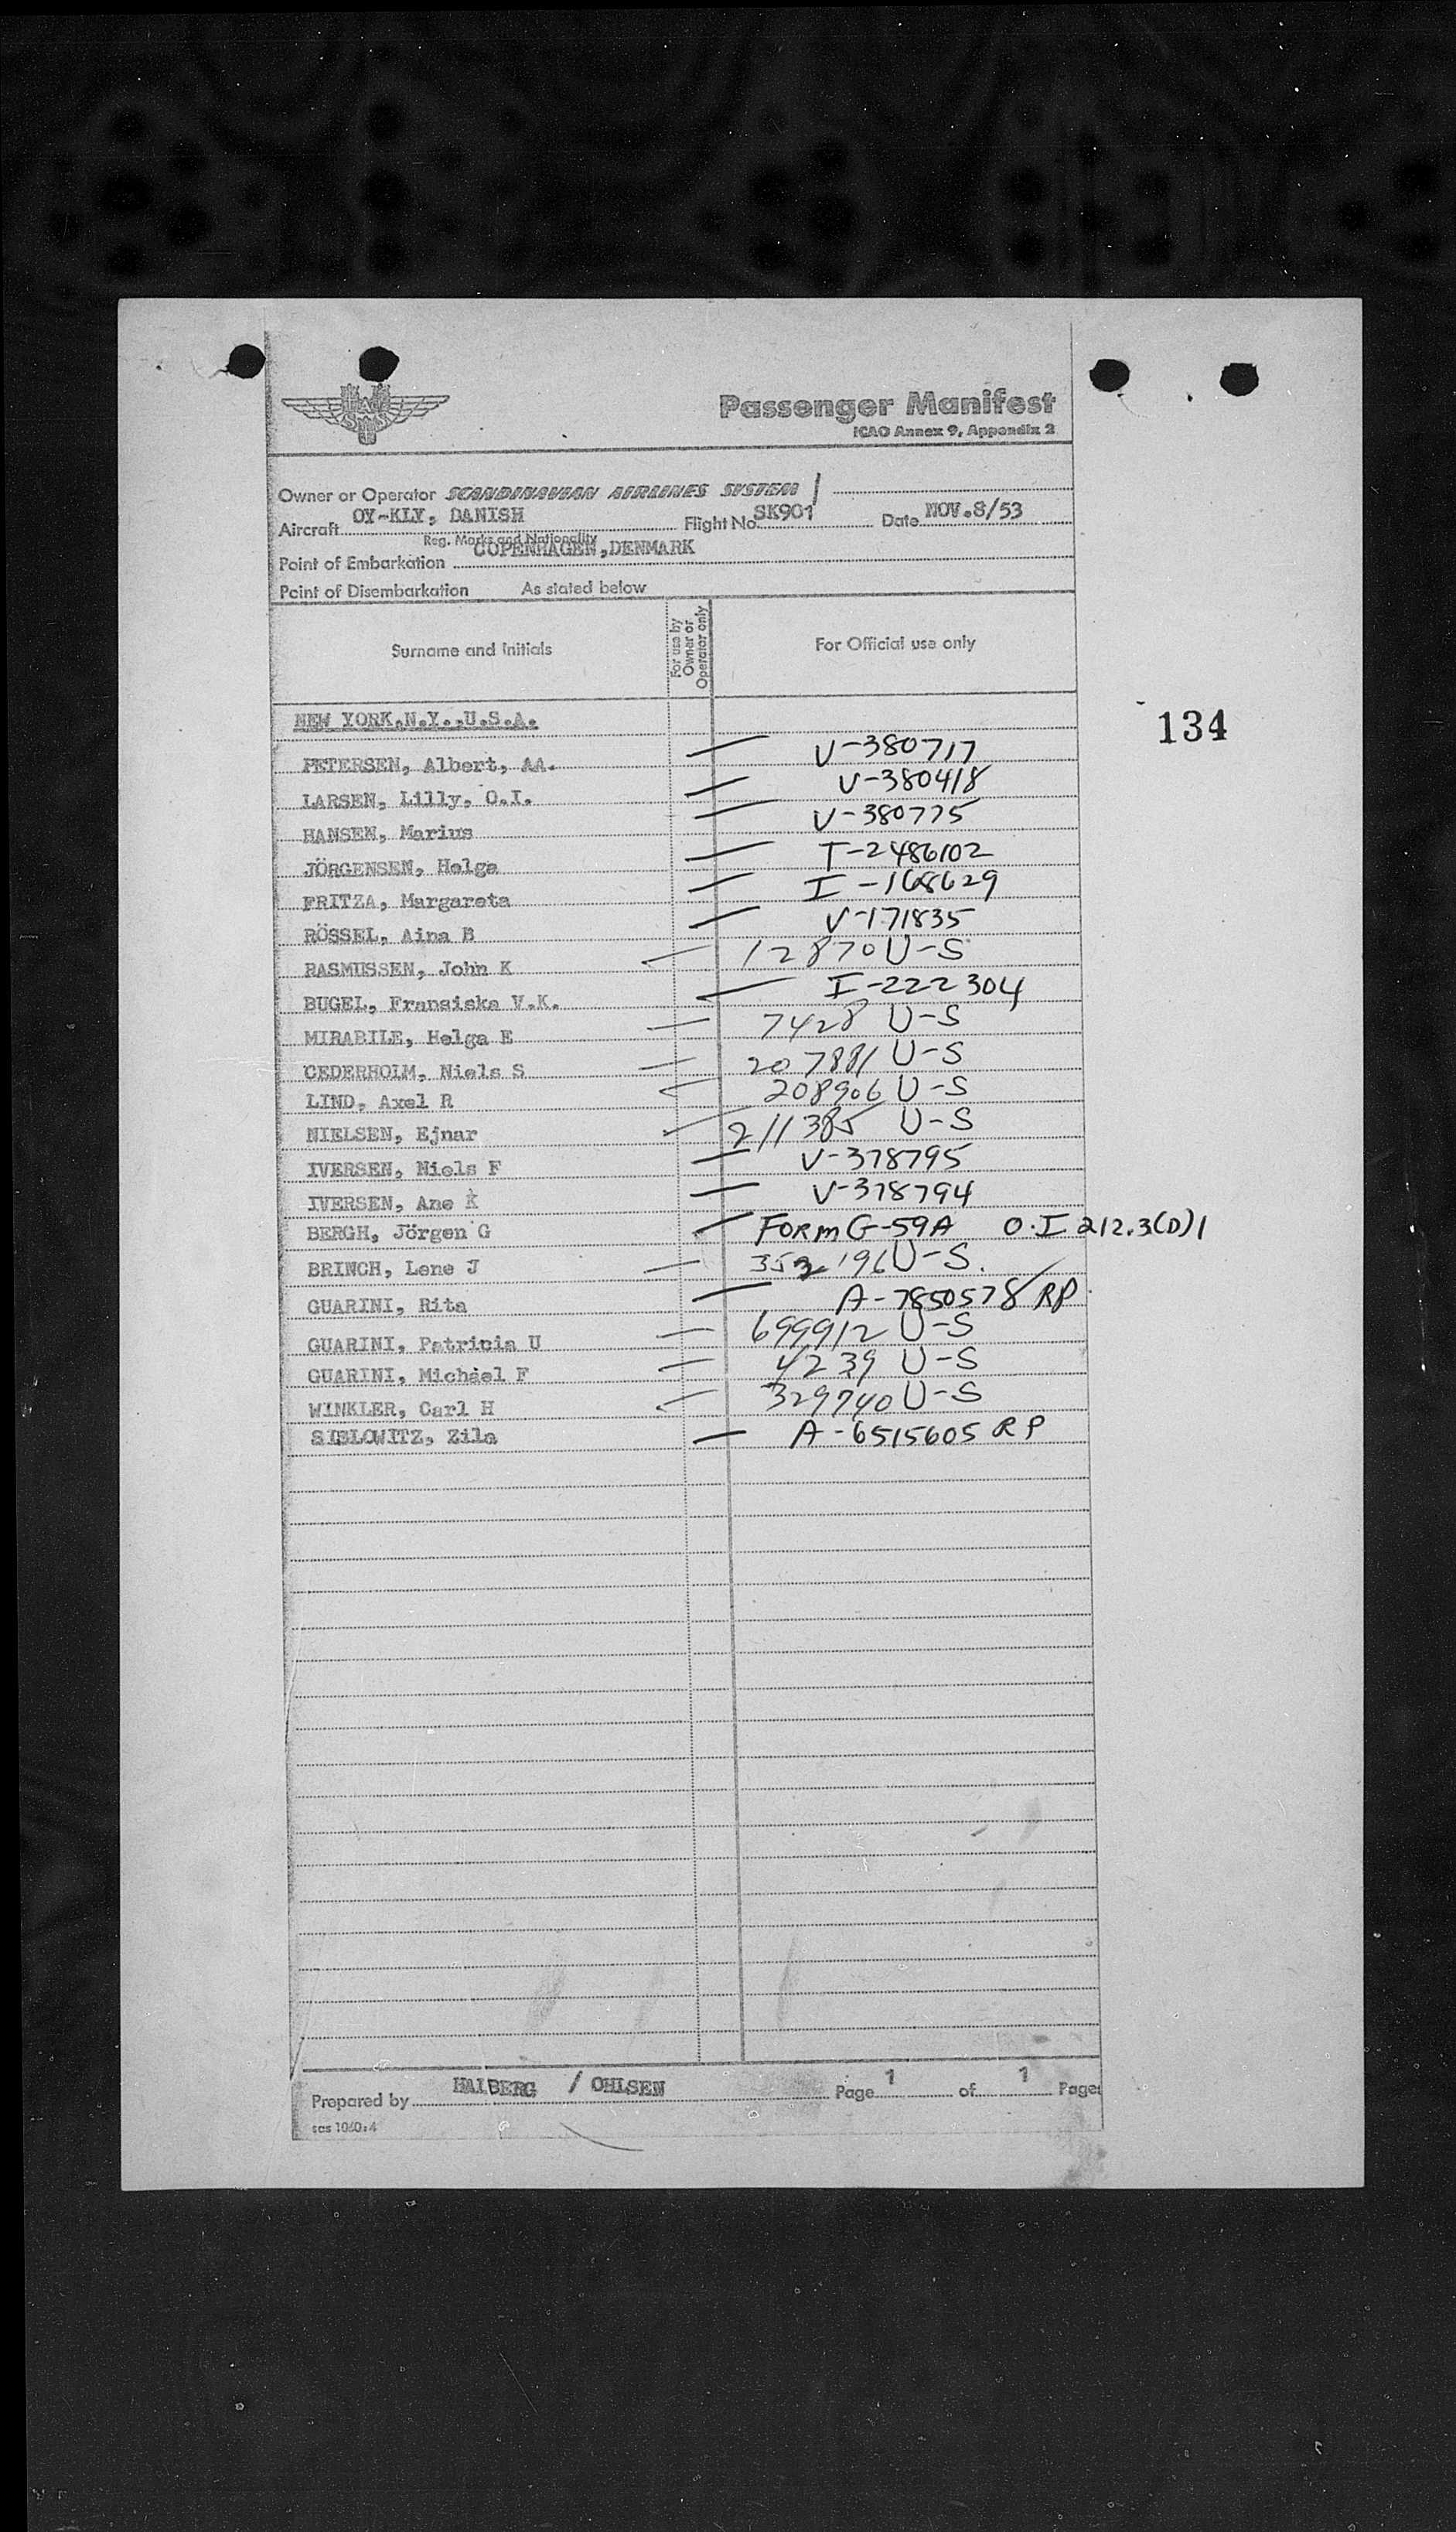 SAS
Passenger Manifest
ICAO Annex 9, Appendix 2
Owner or Operator SCANDINAVIAN AIRLINES SYSTEM
Aircraft OY-KLY, DANISH Flight No. SK901 Date NOV.8/53
Reg. Marks and Nationality
Point of Embarkation COPENHAGEN,DENMARK
Point of Disembarkation As stated below
Surname and Initials For use by Owner or Operator only For Official use only
NEW YORK.N.Y.,U.S.A.
134
PETERSEN, Albert, AA. V-380717
LARSEN, Lilly, O.I. V-380418
HANSEN, Marius V-380775
JÖRGENSEN, Helga T-2486102
FRITZA, Margareta I-168629
RÖSSEL, Aina B V-171835
RASMUSSEN, John K 12870 U-S
BUGEL, Fransiska V.K. I-222304
MIRABILE, Helga E 7428 U-S
CEDERHOLM, Niels S 207881 U-S
LIND, Axel R 208906 U-S
NIELSEN, Ejnar 211385 U-S
IVERSEN, Niels F V-378795
IVERSEN, Ane K V-378794
BERGH, Jörgen G FORM G-59A O.I 212.3(D)1
BRINCH, Lene J 352196 U-S.
GUARINI, Rita A-7850578 RP
GUARINI, Patricia U 699912 U-S
GUARINI, Michael F 4239 U-S
WINKLER, Carl H 329740 U-S
SIBLOWITZ, Zila A-6515605 RP
Prepared by HALBERG / OHLSEN Page 1 of 1 Pages
sas 1060:4